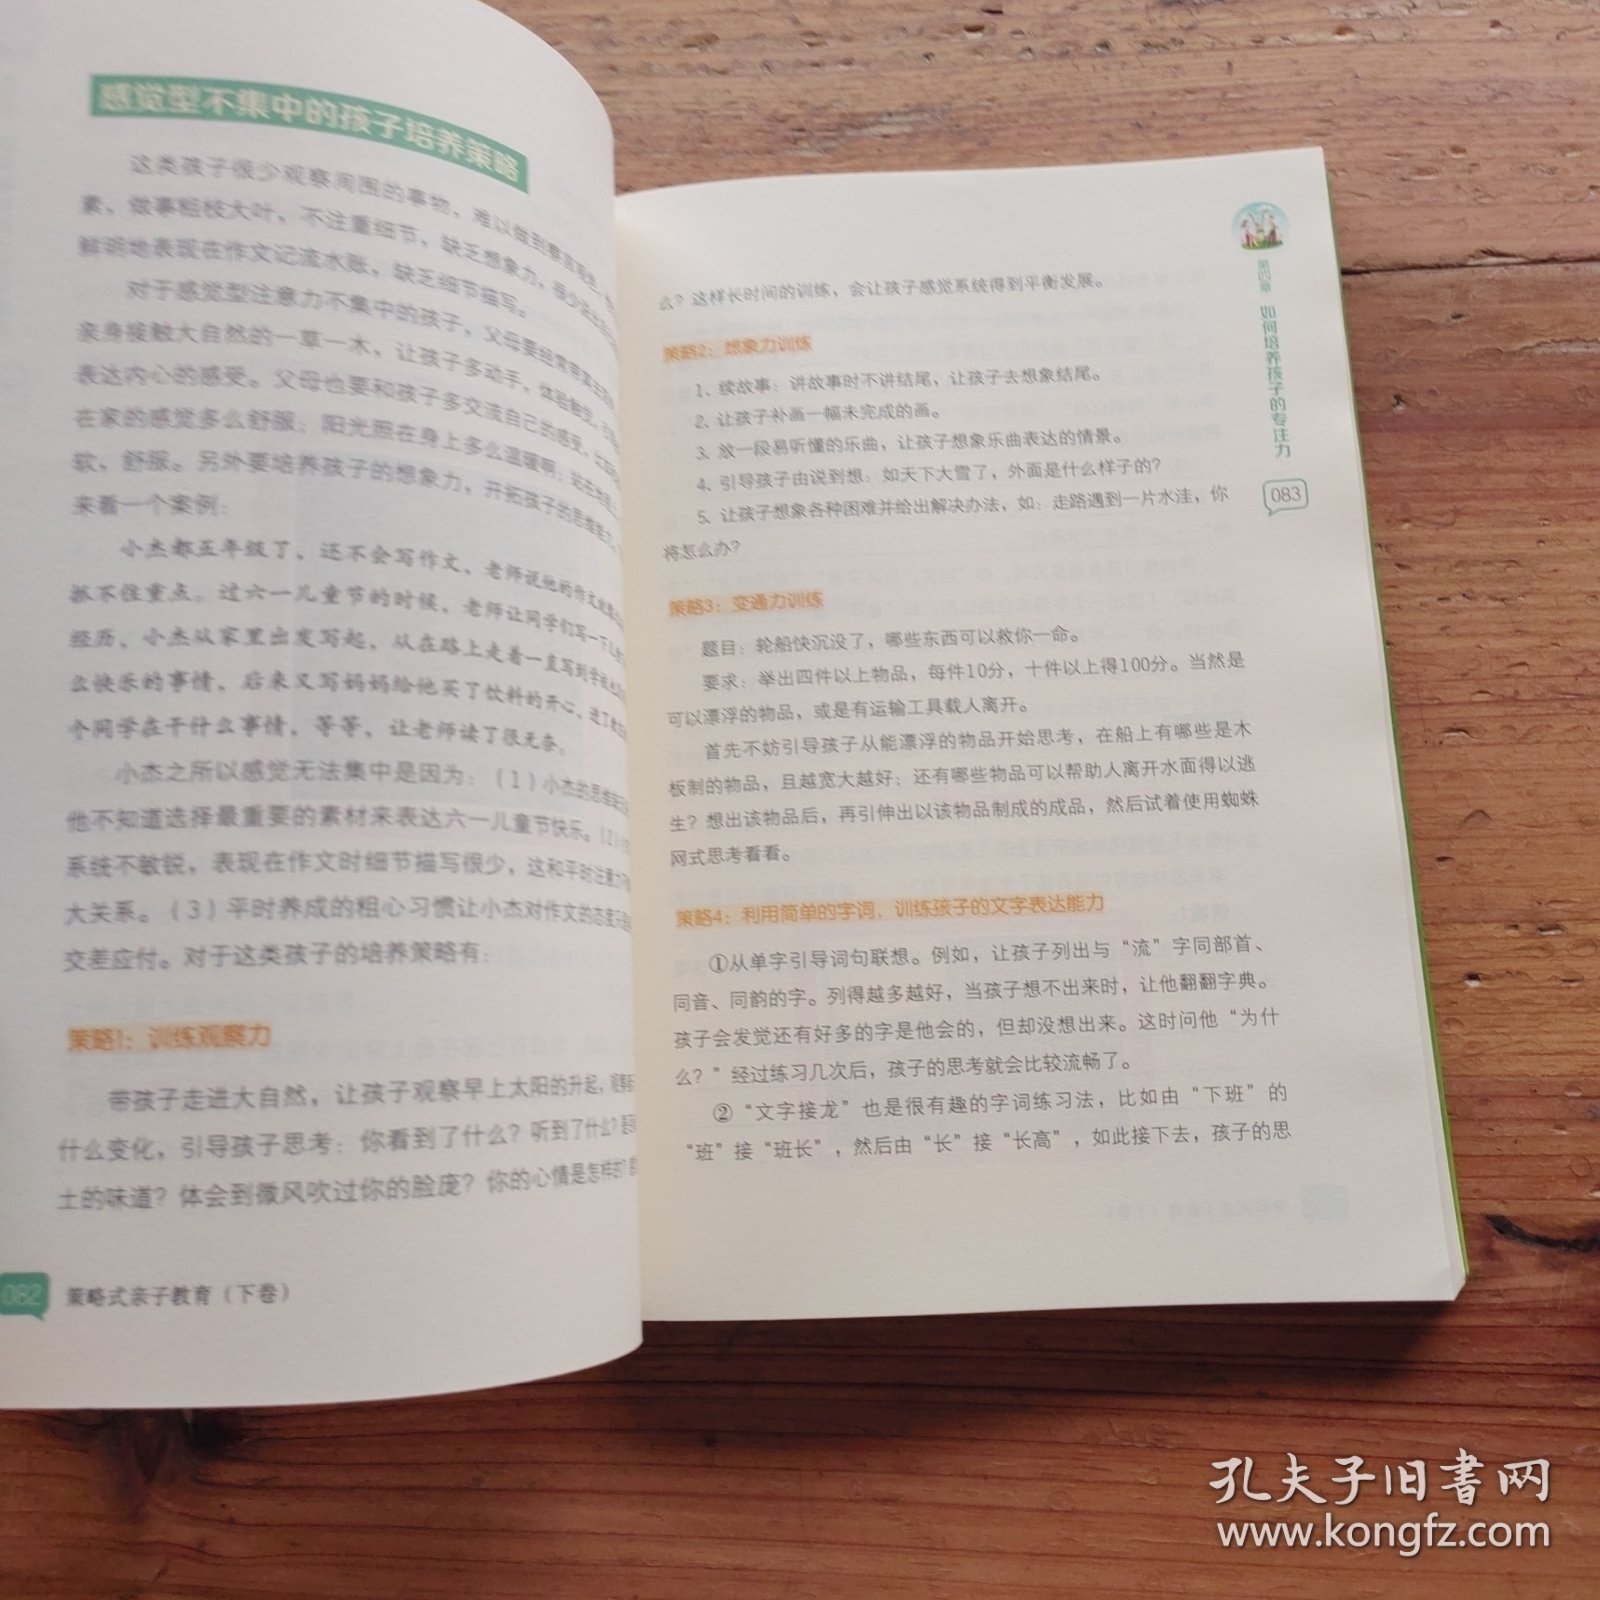 感觉型不集中的孩子培养策略
这类孩子很少观察周围的事物，难以做到察言观色，
素，做事粗枝大叶，不注重细节，缺乏想象力，很少
鲜明地表现在作文记流水账，缺乏细节描写。
对于感觉型注意力不集中的孩子，父母要经常带孩子
亲身接触大自然的一草一木，让孩子多动手，体验触觉，
表达内心的感受。父母也要和孩子多交流自己的感受，
在家的感觉多么舒服；阳光照在身上多么温暖啊；站在
软，舒服。另外要培养孩子的想象力，开拓孩子的思维能力。
来看一个案例：
小杰都五年级了，还不会写作文，老师说他的作文
抓不住重点。过六一儿童节的时候，老师让同学们写一下
经历，小杰从家里出发写起，从在路上走着一直写到学校
么快乐的事情，后来又写妈妈给他买了饮料的开心，进了
个同学在干什么事情，等等，让老师读了很无奈。
小杰之所以感觉无法集中是因为：（1）小杰的思维
他不知道选择最重要的素材来表达六一儿童节快乐。（2）
系统不敏锐，表现在作文时细节描写很少，这和平时注意力
大关系。（3）平时养成的粗心习惯让小杰对作文的态度
交差应付。对于这类孩子的培养策略有：
策略1：训练观察力
带孩子走进大自然，让孩子观察早上太阳的升起，
什么变化，引导孩子思考：你看到了什么？听到了什么？
土的味道？体会到微风吹过你的脸庞？你的心情是怎样的？
082 策略式亲子教育（下卷）
第四章 如何培养孩子的专注力
083
么？这样长时间的训练，会让孩子感觉系统得到平衡发展。
策略2：想象力训练
1. 续故事：讲故事时不讲结尾，让孩子去想象结尾。
2. 让孩子补画一幅未完成的画。
3. 放一段易听懂的乐曲，让孩子想象乐曲表达的情景。
4. 引导孩子由说到想：如天下大雪了，外面是什么样子的？
5. 让孩子想象各种困难并给出解决办法，如：走路遇到一片水洼，你
将怎么办？
策略3：变通力训练
题目：轮船快沉没了，哪些东西可以救你一命。
要求：举出四件以上物品，每件10分，十件以上得100分。当然是
可以漂浮的物品，或是有运输工具载人离开。
首先不妨引导孩子从能漂浮的物品开始思考，在船上有哪些是木
板制的物品，且越宽大越好；还有哪些物品可以帮助人离开水面得以逃
生？想出该物品后，再引伸出以该物品制成的成品，然后试着使用蜘蛛
网式思考看看。
策略4：利用简单的字词，训练孩子的文字表达能力
①从单字引导词句联想。例如，让孩子列出与“流”字同部首、
同音、同韵的字。列得越多越好，当孩子想不出来时，让他翻翻字典。
孩子会发觉还有好多的字是他会的，但却没想出来。这时问他“为什
么？”经过练习几次后，孩子的思考就会比较流畅了。
②“文字接龙”也是很有趣的字词练习法，比如由“下班”的
“班”接“班长”，然后由“长”接“长高”，如此接下去，孩子的思
孔夫子旧书网
www.kongfz.com